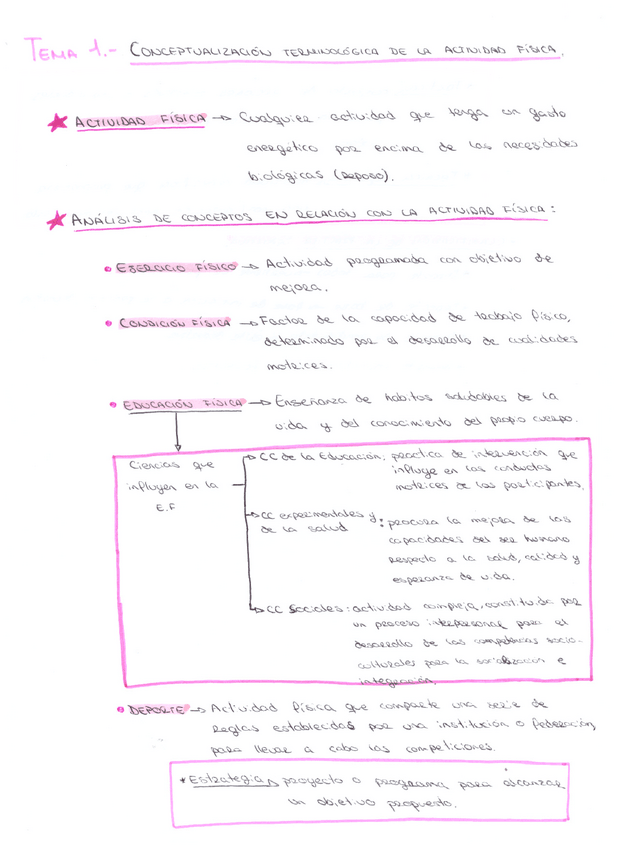 TEMA 1.- CONCEPTUALIZACIÓN TERMINOLÓGICA DE LA ACTIVIDAD FÍSICA.
★ ACTIVIDAD FÍSICA → Cualquier actividad que tenga un gasto
energético por encima de las necesidades
biológicas (reposo).
★ ANÁLISIS DE CONCEPTOS EN RELACIÓN CON LA ACTIVIDAD FÍSICA:
• EJERCICIO FÍSICO → Actividad programada con objetivo de
mejora.
• CONDICIÓN FÍSICA → Factor de la capacidad de trabajo físico,
determinado por el desarrollo de cualidades
motrices.
• EDUCACIÓN FÍSICA → Enseñanza de hábitos saludables de la
vida y del conocimiento del propio cuerpo.
Ciencias que
influyen en la
E.F
CC de la Educación: practica de intervención que
influye en las conductas
motrices de los participantes.
CC experimentales y
de la salud
: procura la mejora de las
capacidades del ser humano
respecto a la salud, calidad y
esperanza de vida.
CC Sociales: actividad compleja, constituida por
un proceso interpersonal para el
desarrollo de las competencias socio-
culturales para la socialización e
integración.
• DEPORTE → Actividad física que comparte una serie de
reglas establecidas por una institución o federación,
para llevar a cabo las competiciones.
* Estrategia → proyecto o programa para alcanzar
un objetivo propuesto.